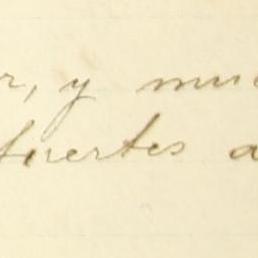 r, y muc
fuertes a